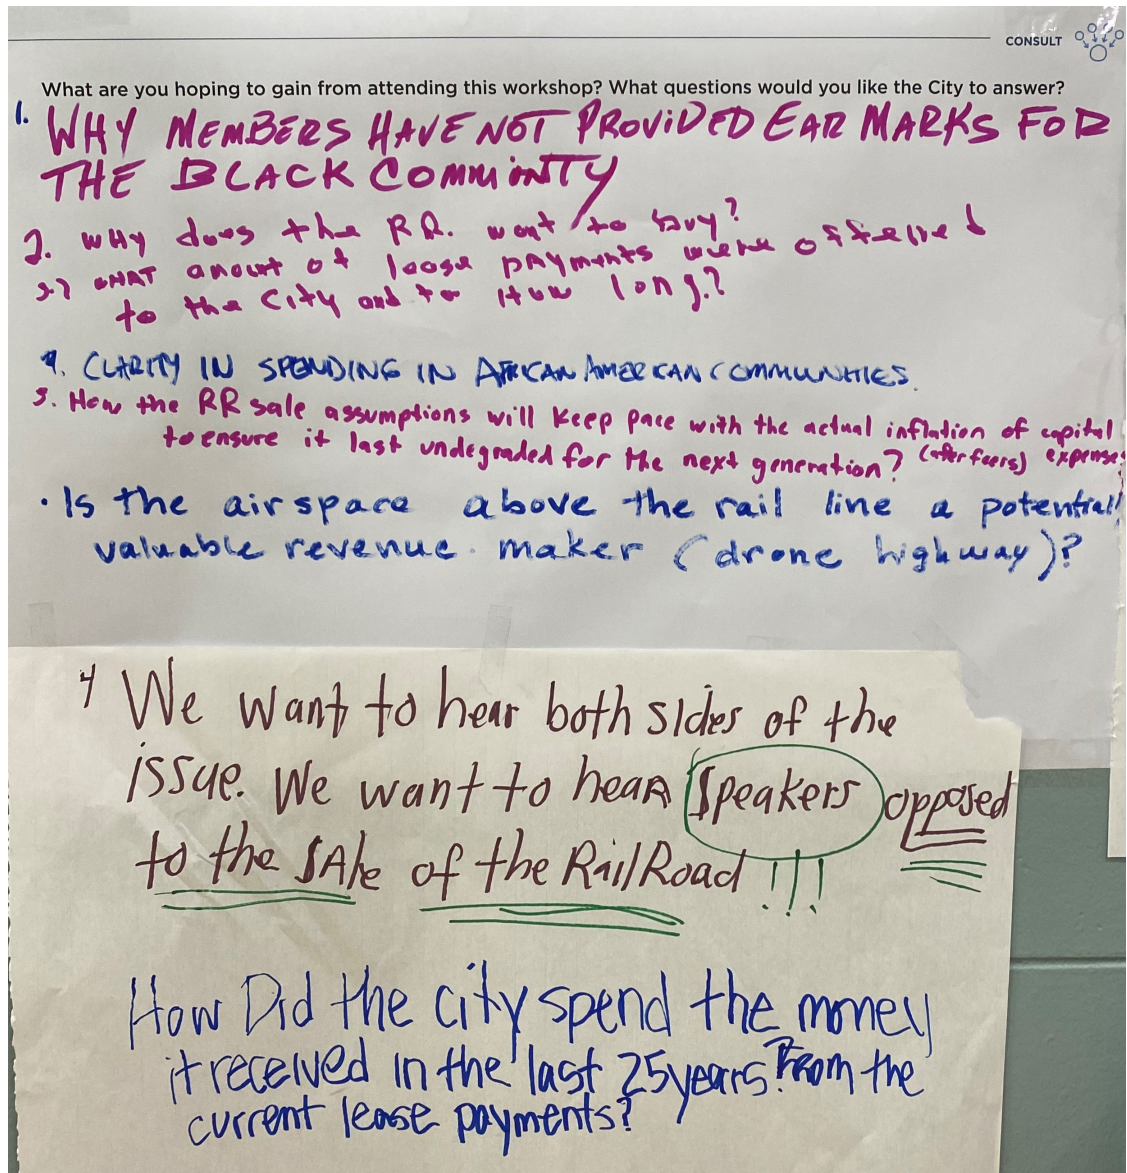 CONSULT
What are you hoping to gain from attending this workshop? What questions would you like the City to answer?
1. WHY MEMBERS HAVE NOT PROVIDED EAR MARKS FOR
THE BLACK COMMUINTY
2. WHY does the RR. want to buy?
3.) WHAT amount of lease payments were offered
to the City and for How long.?
4. CLARITY IN SPENDING IN AFRICAN AMERICAN COMMUNITIES.
5. How the RR sale assumptions will keep pace with the actual inflation of capital
to ensure it last undegraded for the next generation? (after feers) expenses
• Is the airspace above the rail line a potential
valuable revenue maker (drone highway)?
4 We want to hear both sides of the
issue. We want to hear Speakers opposed
to the SAle of the RailRoad !!!
How Did the city spend the money
it received in the last 25 years? From the
current lease payments?